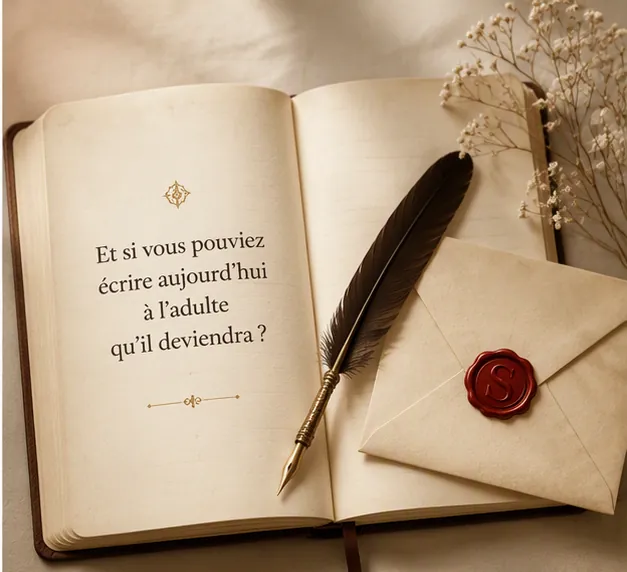 Et si vous pouviez
écrire aujourd'hui
à l'adulte
qu'il deviendra ?
S